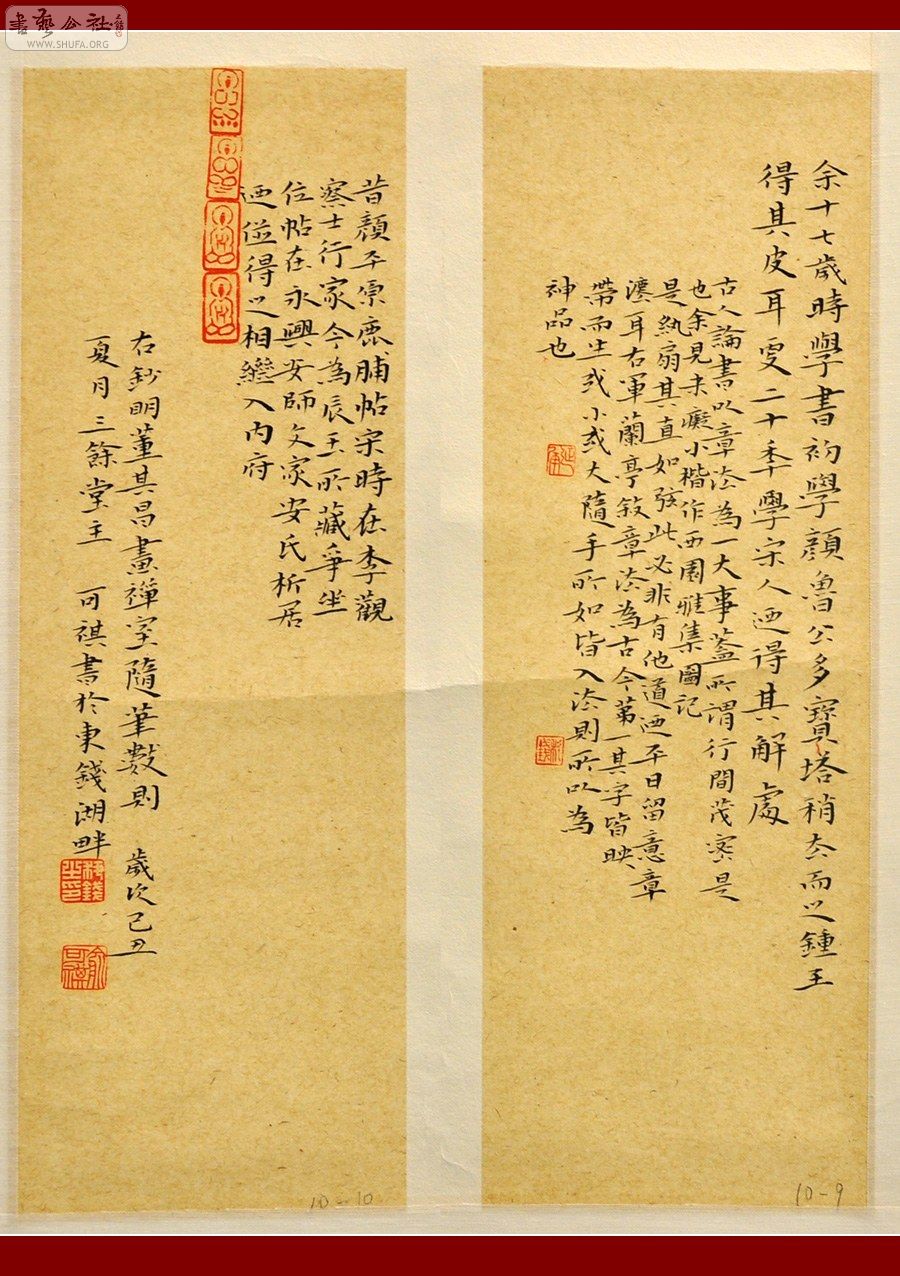 書藝公社
WWW.SHUFA.ORG
余十七歲時學書初學顏魯公多寶塔稍去而之鍾王
得其皮耳更二十季學宋人迺得其解處
古人論書以章法為一大事蓋所謂行間茂密是
也余見米癡小楷作西園雅集圖記
是紈扇其直如弦此必非有他道迺平日留意章
灋耳右軍蘭亭敘章法為古今第一其字皆映
帶而生或小或大隨手所如皆入法則所以為
神品也
10-9
昔顏平原鹿脯帖宋時在李觀
察士行家今為辰玉所藏爭坐
位帖在永興安師文家安氏析居
迺並得之相繼入內府
右鈔明董其昌畫禪室隨筆數則 歲次己丑
夏月三餘堂主 可祺書於東錢湖畔
10-10